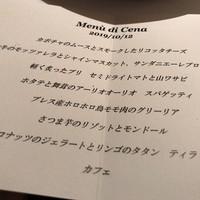 Menù di Cena
2019/10/12
カボチャのムースとスモークしたリコッタチーズ
芋のモッツァレラとシャインマスカット、サンダニエーレプロ
軽く炙ったブリ セミドライトマトと山ワサビ
ホタテと舞茸のアーリオオーリオ スパゲッティ
ブレス産ホロホロ鳥モモ肉のグリーリア
さつま芋のリゾットとモンドール
ロナッツのジェラートとリンゴのタタン ティラ
カフェ